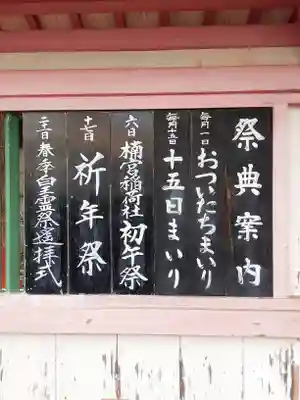 祭典案内
毎月一日 おついたちまいり
毎月十五日 十五日まいり
六日 楠宮稲荷社 初午祭
十七日 祈年祭
二十日 春季皇霊祭遙拝式